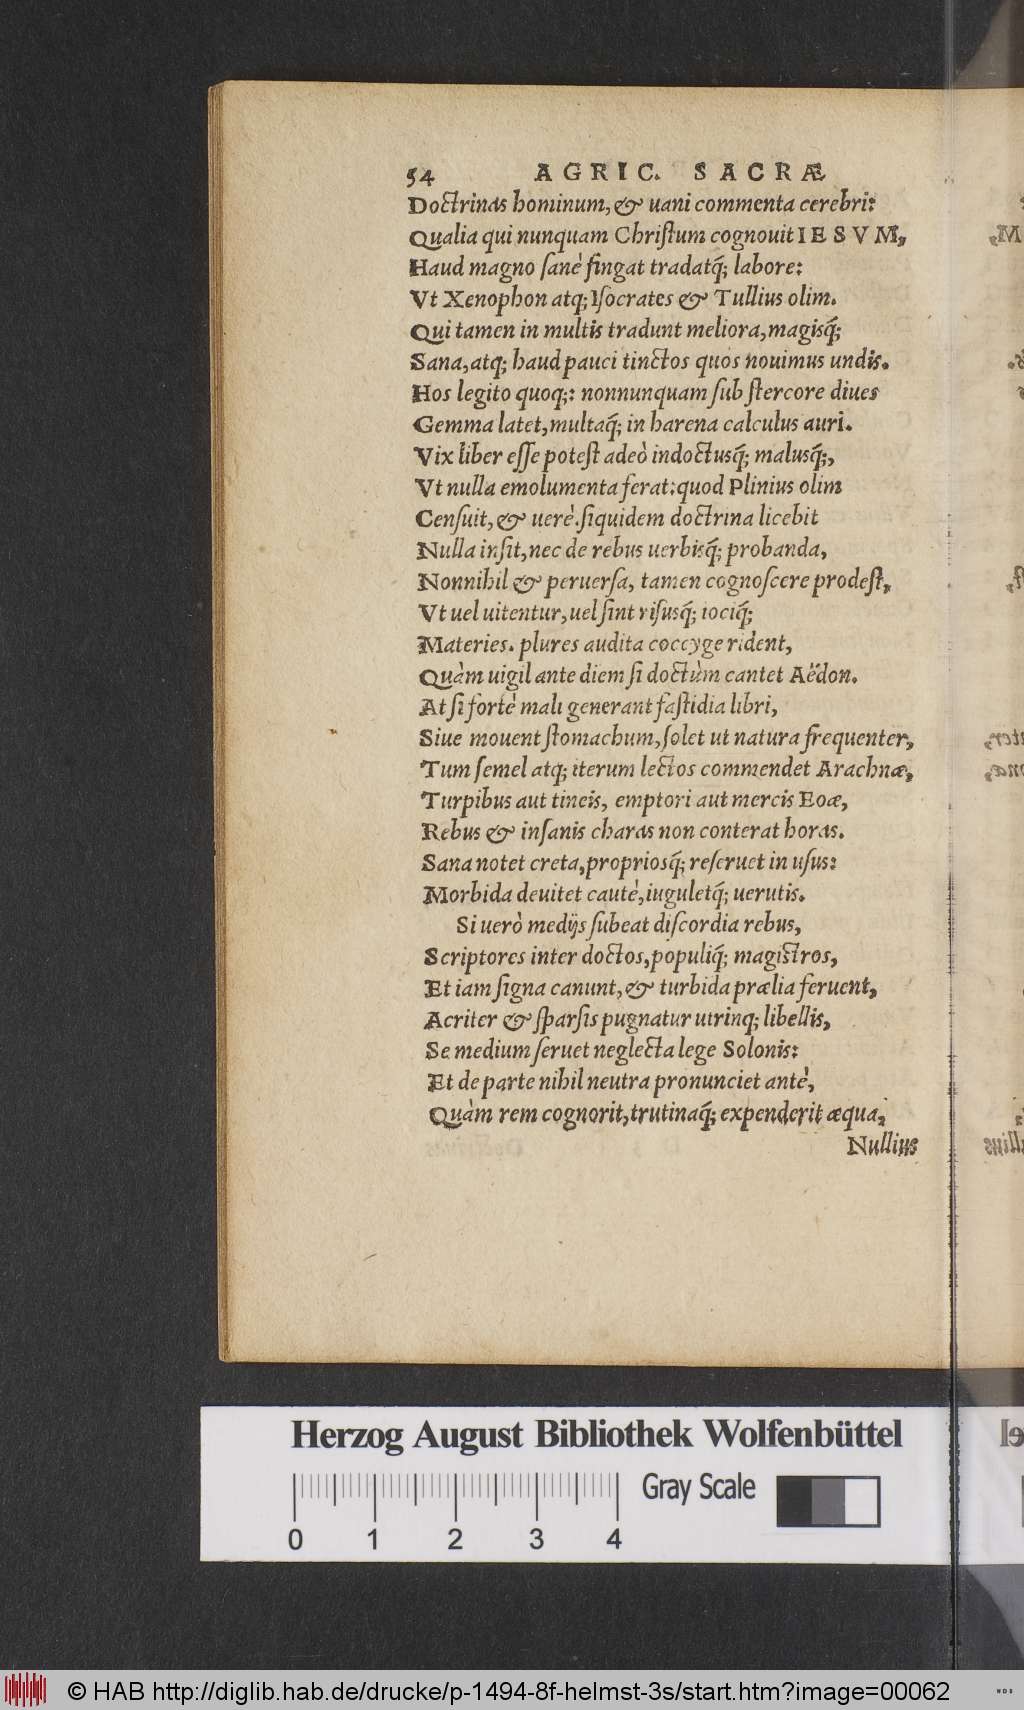 54 AGRIC. SACRÆ
Doctrinas hominum, & uani commenta cerebri:
Qualia qui nunquam Chriſtum cognouit IESVM,
Haud magno ſanè fingat tradatq́; labore:
Vt Xenophon atq; Iſocrates & Tullius olim.
Qui tamen in multis tradunt meliora, magisq́;
Sana, atq; haud pauci tinctos quos nouimus undis.
Hos legito quoq;: nonnunquam ſub ſtercore diues
Gemma latet, multaq́; in harena calculus auri.
Vix liber eſſe poteſt adeò indoctusq́; malusq́;,
Vt nulla emolumenta ferat: quod Plinius olim
Cenſuit, & uerè. ſiquidem doctrina licebit
Nulla inſit, nec de rebus uerbisq́; probanda,
Nonnihil & peruerſa, tamen cognoſcere prodeſt,
Vt uel uitentur, uel ſint riſusq́; iociq́;
Materies. plures audita coccyge rident,
Quàm uigil ante diem ſi doctùm cantet Aëdon.
At ſi fortè mali generant faſtidia libri,
Siue mouent ſtomachum, ſolet ut natura frequenter,
Tum ſemel atq; iterum lectos commendet Arachnæ,
Turpibus aut tineis, emptori aut mercis Eoæ,
Rebus & inſanis charas non conterat horas.
Sana notet creta, propriosq́; reſeruet in uſus:
Morbida deuitet cautè, iuguletq́; uerutis.
Si uerò medijs ſubeat diſcordia rebus,
Scriptores inter doctos, populiq́; magiſtros,
Et iam ſigna canunt, & turbida prælia feruent,
Acriter & ſparſis pugnatur utrinq; libellis,
Se medium ſeruet neglecta lege Solonis:
Et de parte nihil neutra pronunciet antè,
Quàm rem cognorit, trutinaq́; expenderit æqua,
Nullius
Herzog August Bibliothek Wolfenbüttel
Gray Scale
0 1 2 3 4
© HAB http://diglib.hab.de/drucke/p-1494-8f-helmst-3s/start.htm?image=00062